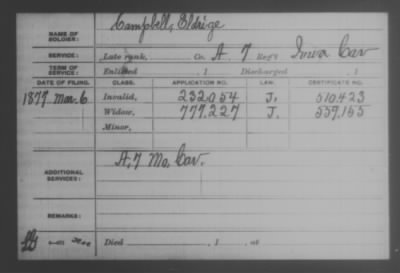 NAME OF SOLDIER: Campbell, Eldrige
SERVICE: Late rank, Co. A 7 Reg't Iowa Cav
TERM OF SERVICE: Enlisted , 1 Discharged , 1
DATE OF FILING. CLASS. APPLICATION NO. LAW. CERTIFICATE NO.
1877 Mar. 6 Invalid, 232054 J. 510.423
Widow, 777.227 J. 559.155
Minor,
ADDITIONAL SERVICES: A, 7 Mo. Cav.
REMARKS:
Died , 1 , at